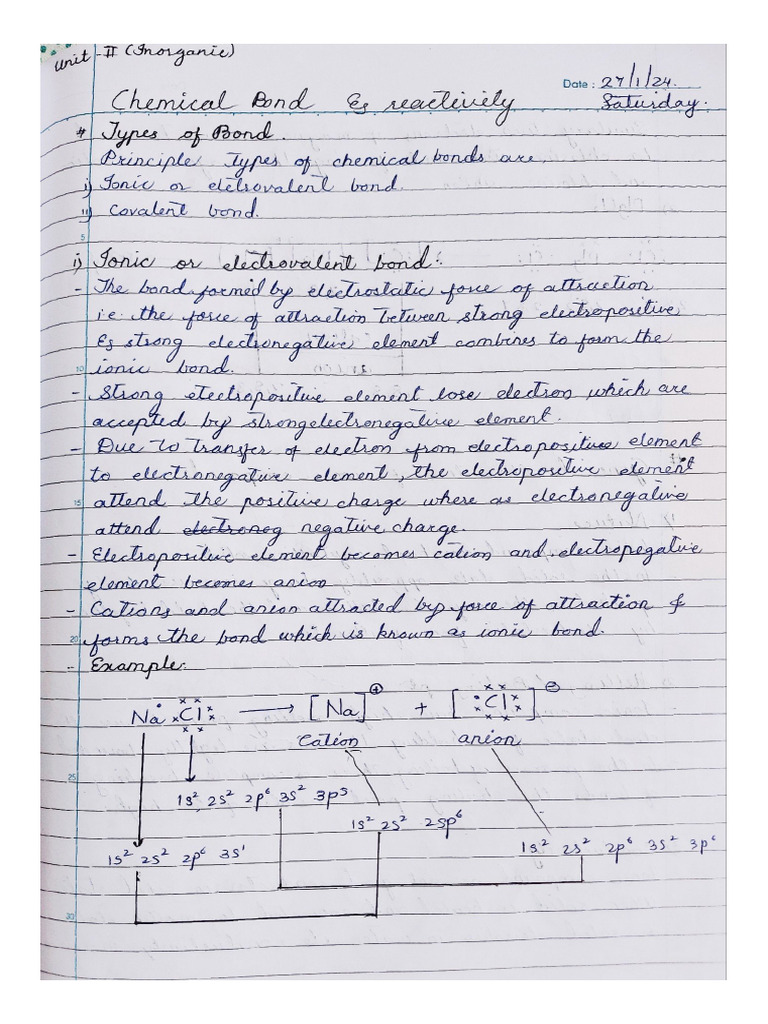 Unit - II (Inorganic)
Date : 27/1/24.
Chemical Bond & reactivily Saturday.
# Types of Bond.
Principle Types of chemical bonds are.
i) Ionic or eletrovalent bond.
ii) Covalent bond.
5
i) Ionic or electrovalent bond:
- The bond formed by electrostatic force of attraction
i.e. the force of attraction between strong electropositive
& strong electronegative element combines to form the
10 ionic bond.
- Strong electropositive element lose electron which are
accepted by strong electronegative element.
- Due to transfer of electron from electropositive element
to electronegative element, the electropositive element
15 attend the positive charge where as electronegative
attend electroneg negative charge.
- Electropositive element becomes cation and electronegative
element becomes anion
- Cations and anion attracted by force of attraction &
20 forms the bond which is known as ionic bond.
- Example:
Na Cl → [Na]⊕ + [Cl]⊖
Cation anion
25
1s² 2s² 2p⁶ 3s² 3p⁵
1s² 2s² 2sp⁶
1s² 2s² 2p⁶ 3s² 3p⁶
1s² 2s² 2p⁶ 3s¹
30